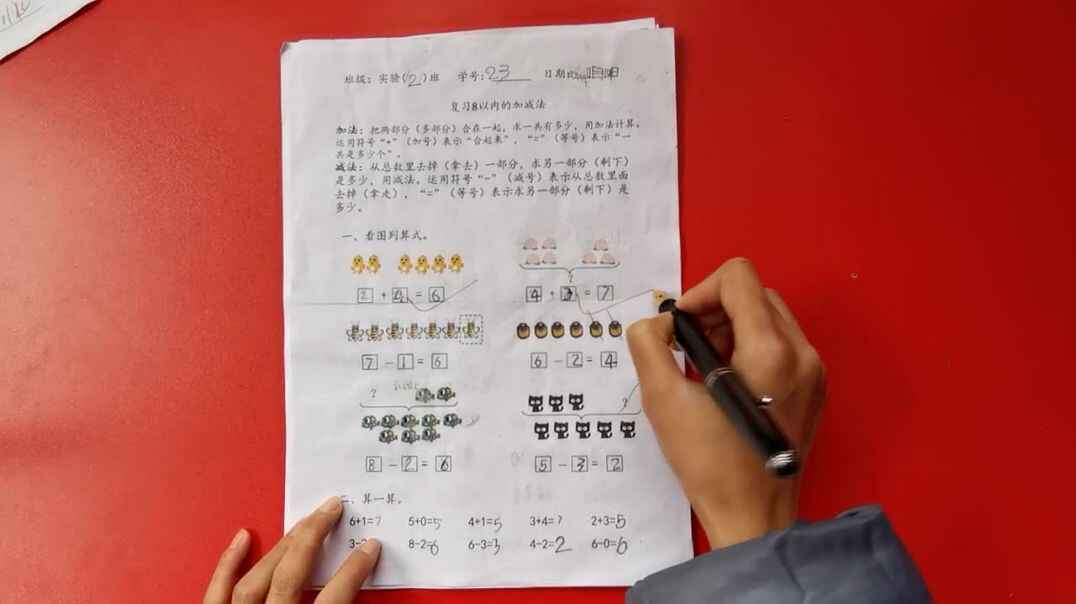 班级：实验（2）班 学号：23 日期
复习8以内的加减法
加法：把两部分（多部分）合在一起，求一共有多少，用加法计算。
运用符号“+”（加号）表示“合起来”，“=”（等号）表示“一
共是多少个”。
减法：从总数里去掉（拿去）一部分，求另一部分（剩下）
是多少，用减法。运用符号“-”（减号）表示从总数里面
去掉（拿走），“=”（等号）表示求另一部分（剩下）是
多少。
一、看图列算式。
?
2 + 4 = 6 4 + 3 = 7
7 - 1 = 6 6 - 2 = 4
? ?
8 - 2 = 6 5 - 3 = 2
二、算一算。
6+1=7 5+0=5 4+1=5 3+4=7 2+3=5
8-2=6 6-3=3 4-2=2 6-0=6